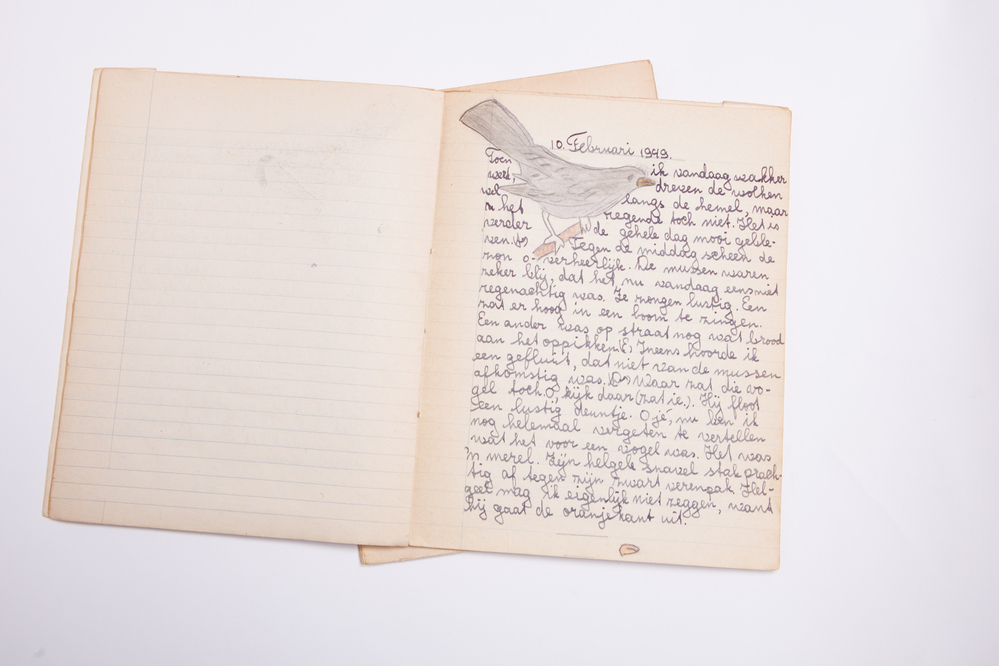 10. Februari 1949.
Toen ik vandaag wakker
werd, dreven de wolken
wel langs de hemel, maar
het regende toch niet. Het is
verder de gehele dag mooi geble-
ven. Tegen de middag scheen de
zon o verheerlijk. De mussen waren
zeker blij, dat het nu vandaag eens niet
regenachtig was. Ze zongen lustig. Een
zat er hoog in een boom te zingen.
Een ander was op straat nog wat brood
aan het oppikken. Ineens hoorde ik
een gefluit, dat niet van de mussen
afkomstig was. Waar zat die vo-
gel toch. O, kijk daar (zat ie). Hij floot
een lustig deuntje. O jé, nu ben ik
nog helemaal vergeten te vertellen
wat het voor een vogel was. Het was
'n merel. Zijn helgele snavel stak prach-
tig af tegen zijn zwart verenpak. Hel-
geel mag ik eigenlijk niet zeggen, want
hij gaat de oranjekant uit.